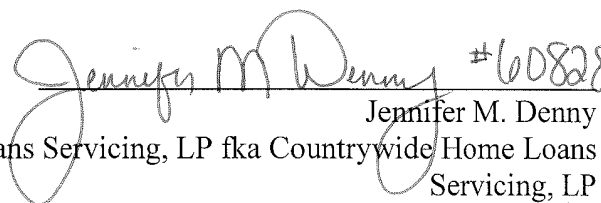 Jennifer M Denny #60828
Jennifer M. Denny
ans Servicing, LP fka Countrywide Home Loans
Servicing, LP